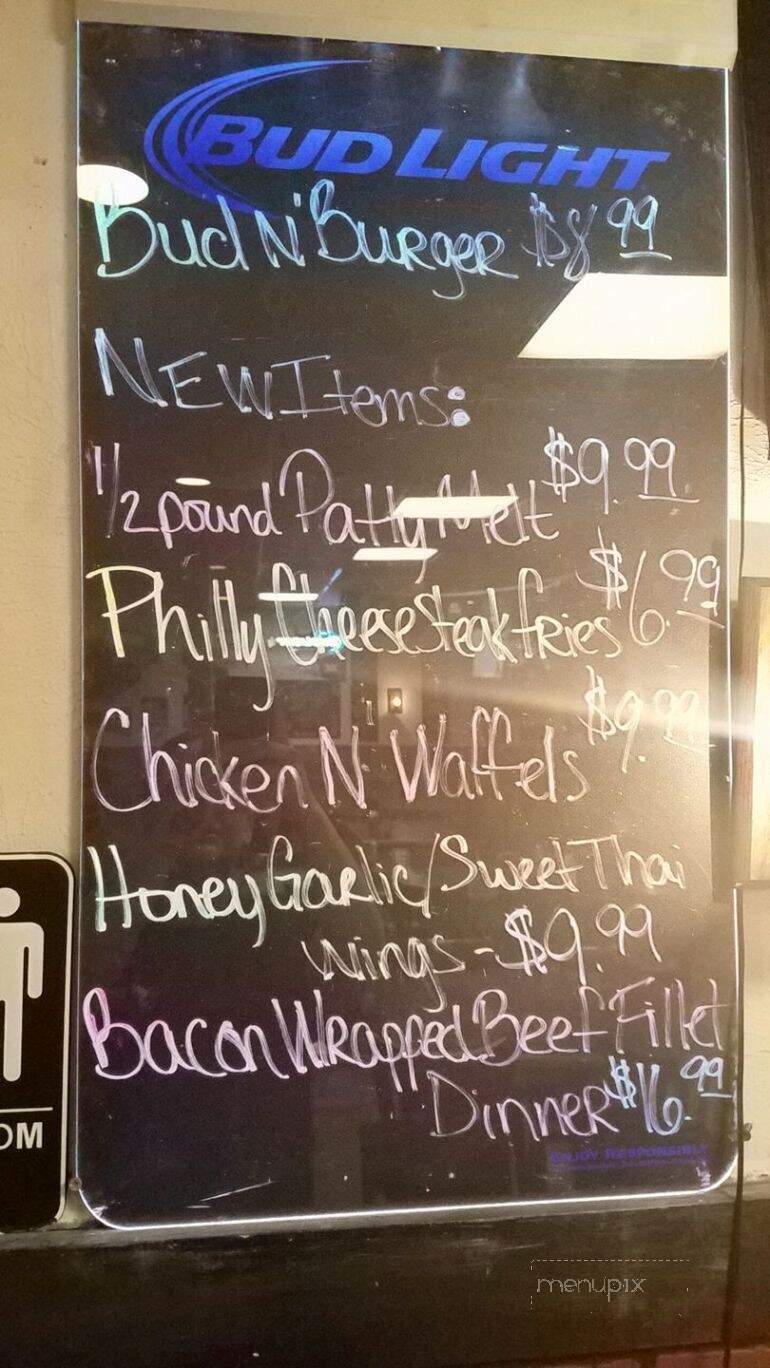 BUD LIGHT
Bud N' Burger $8.99
NEW Items:
1/2 pound Patty Melt $9.99
Philly Cheese Steak fries $6.99
Chicken N Waffels $9.99
Honey Garlic/Sweet Thai
wings - $9.99
Bacon Wrapped Beef Fillet
Dinner $16.99
ENJOY RESPONSIBLY
OM
menupix